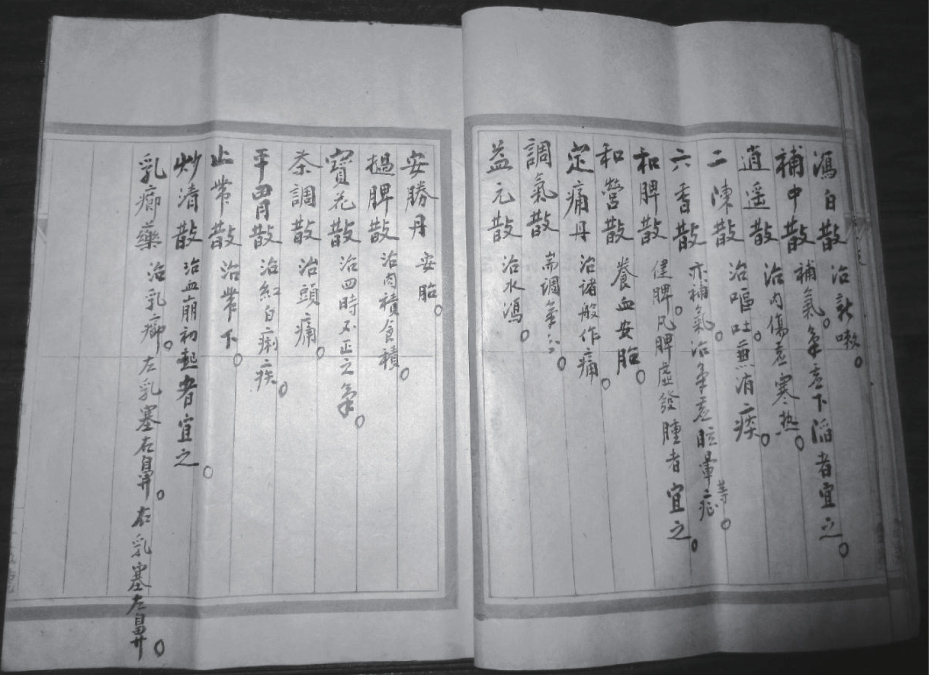 瀉白散 治欬嗽。
補中散 補氣。氣虛下陷者宜之。
逍遙散 治內傷虛寒熱。
二陳散 治嘔吐兼消痰。
六香散 亦補氣。治氣虛眩暈等症。
和脾散 健脾。凡脾虛發腫者宜之。
和營散 養血安胎。
定痛丹 治諸般作痛。
調氣散 耑調氣分。
益元散 治水瀉。
安勝丹 安胎。
脾散 治肉積食積。
寶花散 治四時不正之氣。
茶調散 治頭痛。
散 治紅白痢疾。
止帶散 治帶下。
炒清散 治血崩初起者宜之。
乳癤藥 治乳癤。左乳塞右鼻。右乳塞左鼻。